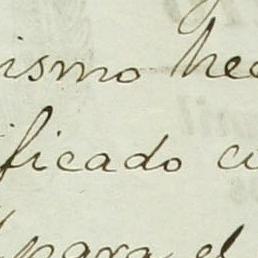 ismo hec
ificado cu
para el